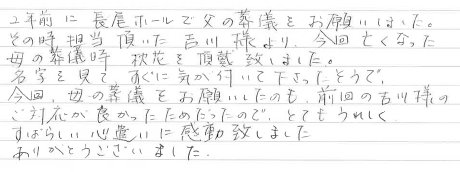 2年前に長尾ホールで父の葬儀をお願いしました。
その時担当頂いた吉川様より、今回亡くなった
母の葬儀時 枕花を頂戴致しました。
名字を見てすぐに気が付いて下さったそうで、
今回母の葬儀をお願いしたのも、前回の吉川様の
ご対応が良かったためだったので、とてもうれしく
すばらしい心遣いに感動致しました
ありがとうございました。